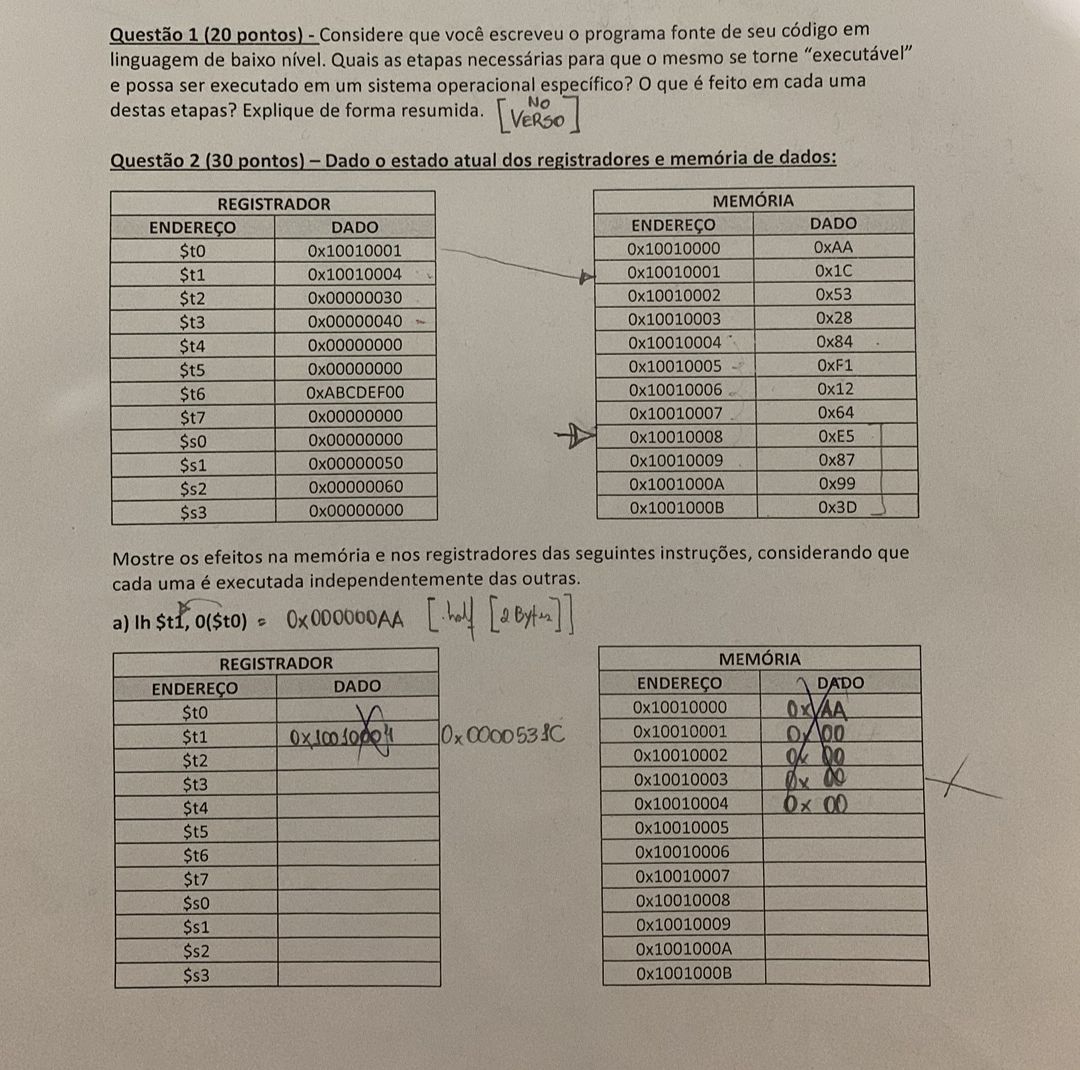 Questão 1 (20 pontos) - Considere que você escreveu o programa fonte de seu código em
linguagem de baixo nível. Quais as etapas necessárias para que o mesmo se torne “executável”
e possa ser executado em um sistema operacional específico? O que é feito em cada uma
destas etapas? Explique de forma resumida. [NO
VERSO]
Questão 2 (30 pontos) – Dado o estado atual dos registradores e memória de dados:
REGISTRADOR
ENDEREÇO DADO
$t0 0x10010001
$t1 0x10010004
$t2 0x00000030
$t3 0x00000040
$t4 0x00000000
$t5 0x00000000
$t6 0xABCDEF00
$t7 0x00000000
$s0 0x00000000
$s1 0x00000050
$s2 0x00000060
$s3 0x00000000
MEMÓRIA
ENDEREÇO DADO
0x10010000 0xAA
0x10010001 0x1C
0x10010002 0x53
0x10010003 0x28
0x10010004 0x84
0x10010005 0xF1
0x10010006 0x12
0x10010007 0x64
0x10010008 0xE5
0x10010009 0x87
0x1001000A 0x99
0x1001000B 0x3D
Mostre os efeitos na memória e nos registradores das seguintes instruções, considerando que
cada uma é executada independentemente das outras.
a) lh $t1, 0($t0) = 0x000000AA [.half [2 Bytes]]
REGISTRADOR
ENDEREÇO DADO
$t0
$t1 0x10010004 0x0000531C
$t2
$t3
$t4
$t5
$t6
$t7
$s0
$s1
$s2
$s3
MEMÓRIA
ENDEREÇO DADO
0x10010000 0xAA
0x10010001 0x00
0x10010002 0x00
0x10010003 0x00
0x10010004 0x00
0x10010005
0x10010006
0x10010007
0x10010008
0x10010009
0x1001000A
0x1001000B